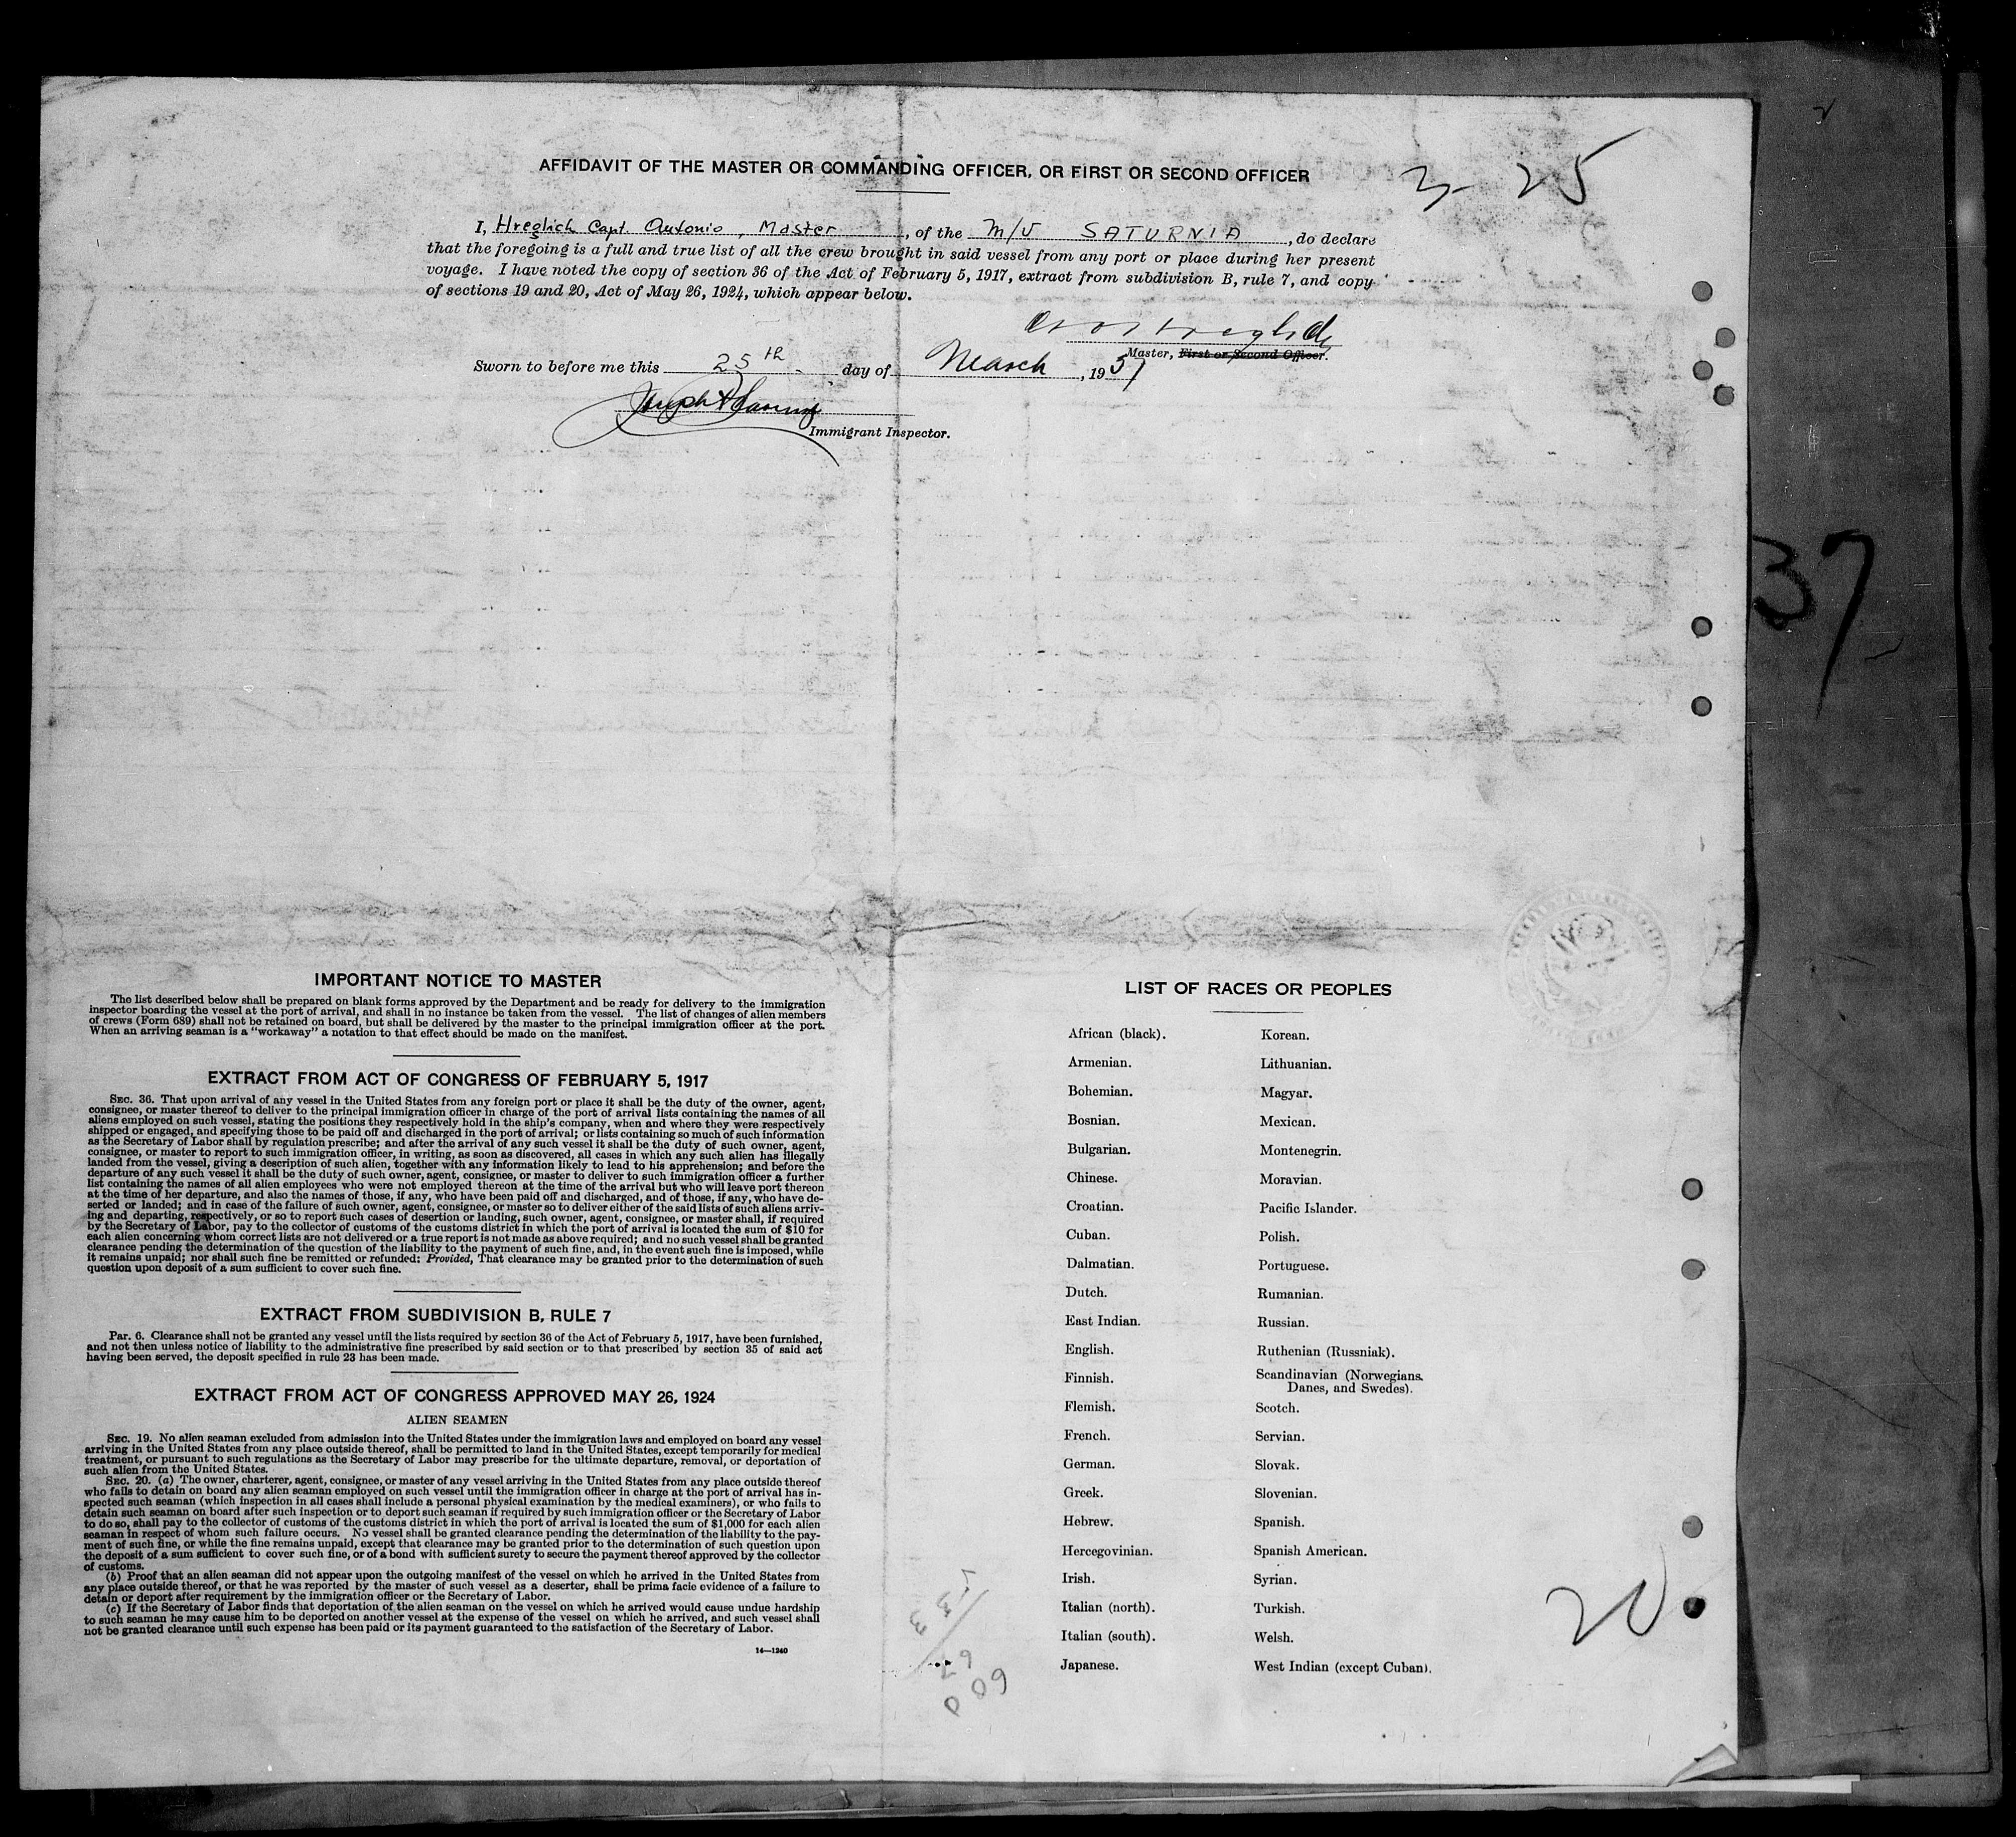 AFFIDAVIT OF THE MASTER OR COMMANDING OFFICER, OR FIRST OR SECOND OFFICER
3- 25
I, Hreglich Capt. Antonio, Master, of the M/V SATURNIA, do declare
that the foregoing is a full and true list of all the crew brought in said vessel from any port or place during her present
voyage. I have noted the copy of section 36 of the Act of February 5, 1917, extract from subdivision B, rule 7, and copy
of sections 19 and 20, Act of May 26, 1924, which appear below.
Master, First or Second Officer.
Sworn to before me this 25th day of March, 1937
Joseph
Immigrant Inspector.
37
IMPORTANT NOTICE TO MASTER
The list described below shall be prepared on blank forms approved by the Department and be ready for delivery to the immigration
inspector boarding the vessel at the port of arrival, and shall in no instance be taken from the vessel. The list of changes of alien members
of crews (Form 689) shall not be retained on board, but shall be delivered by the master to the principal immigration officer at the port.
When an arriving seaman is a "workaway" a notation to that effect should be made on the manifest.
EXTRACT FROM ACT OF CONGRESS OF FEBRUARY 5, 1917
SEC. 36. That upon arrival of any vessel in the United States from any foreign port or place it shall be the duty of the owner, agent,
consignee, or master thereof to deliver to the principal immigration officer in charge of the port of arrival lists containing the names of all
aliens employed on such vessel, stating the positions they respectively hold in the ship's company, when and where they were respectively
shipped or engaged, and specifying those to be paid off and discharged in the port of arrival; or lists containing so much of such information
as the Secretary of Labor shall by regulation prescribe; and after the arrival of any such vessel it shall be the duty of such owner, agent,
consignee, or master to report to such immigration officer, in writing, as soon as discovered, all cases in which any such alien has illegally
landed from the vessel, giving a description of such alien, together with any information likely to lead to his apprehension; and before the
departure of any such vessel it shall be the duty of such owner, agent, consignee, or master to deliver to such immigration officer a further
list containing the names of all alien employees who were not employed thereon at the time of the arrival but who will leave port thereon
at the time of her departure, and also the names of those, if any, who have been paid off and discharged, and of those, if any, who have de-
serted or landed; and in case of the failure of such owner, agent, consignee, or master so to deliver either of the said lists of such aliens arriv-
ing and departing, respectively, or so to report such cases of desertion or landing, such owner, agent, consignee, or master shall, if required
by the Secretary of Labor, pay to the collector of customs of the customs district in which the port of arrival is located the sum of $10 for
each alien concerning whom correct lists are not delivered or a true report is not made as above required; and no such vessel shall be granted
clearance pending the determination of the question of the liability to the payment of such fine, and, in the event such fine is imposed, while
it remains unpaid; nor shall such fine be remitted or refunded: Provided, That clearance may be granted prior to the determination of such
question upon deposit of a sum sufficient to cover such fine.
EXTRACT FROM SUBDIVISION B, RULE 7
Par. 6. Clearance shall not be granted any vessel until the lists required by section 36 of the Act of February 5, 1917, have been furnished,
and not then unless notice of liability to the administrative fine prescribed by said section or to that prescribed by section 35 of said act
having been served, the deposit specified in rule 23 has been made.
EXTRACT FROM ACT OF CONGRESS APPROVED MAY 26, 1924
ALIEN SEAMEN
SEC. 19. No alien seaman excluded from admission into the United States under the immigration laws and employed on board any vessel
arriving in the United States from any place outside thereof, shall be permitted to land in the United States, except temporarily for medical
treatment, or pursuant to such regulations as the Secretary of Labor may prescribe for the ultimate departure, removal, or deportation of
such alien from the United States.
SEC. 20. (a) The owner, charterer, agent, consignee, or master of any vessel arriving in the United States from any place outside thereof
who fails to detain on board any alien seaman employed on such vessel until the immigration officer in charge at the port of arrival has in-
spected such seaman (which inspection in all cases shall include a personal physical examination by the medical examiners), or who fails to
detain such seaman on board after such inspection or to deport such seaman if required by such immigration officer or the Secretary of Labor
to do so, shall pay to the collector of customs of the customs district in which the port of arrival is located the sum of $1,000 for each alien
seaman in respect of whom such failure occurs. No vessel shall be granted clearance pending the determination of the liability to the pay-
ment of such fine, or while the fine remains unpaid, except that clearance may be granted prior to the determination of such question upon
the deposit of a sum sufficient to cover such fine, or of a bond with sufficient surety to secure the payment thereof approved by the collector
of customs.
(b) Proof that an alien seaman did not appear upon the outgoing manifest of the vessel on which he arrived in the United States from
any place outside thereof, or that he was reported by the master of such vessel as a deserter, shall be prima facie evidence of a failure to
detain or deport after requirement by the immigration officer or the Secretary of Labor.
(c) If the Secretary of Labor finds that deportation of the alien seaman on the vessel on which he arrived would cause undue hardship
to such seaman he may cause him to be deported on another vessel at the expense of the vessel on which he arrived, and such vessel shall
not be granted clearance until such expense has been paid or its payment guaranteed to the satisfaction of the Secretary of Labor.
14—1240
LIST OF RACES OR PEOPLES
African (black).
Armenian.
Bohemian.
Bosnian.
Bulgarian.
Chinese.
Croatian.
Cuban.
Dalmatian.
Dutch.
East Indian.
English.
Finnish.
Flemish.
French.
German.
Greek.
Hebrew.
Hercegovinian.
Irish.
Italian (north).
Italian (south).
Japanese.
Korean.
Lithuanian.
Magyar.
Mexican.
Montenegrin.
Moravian.
Pacific Islander.
Polish.
Portuguese.
Rumanian.
Russian.
Ruthenian (Russniak).
Scandinavian (Norwegians,
Danes, and Swedes).
Scotch.
Servian.
Slovak.
Slovenian.
Spanish.
Spanish American.
Syrian.
Turkish.
Welsh.
West Indian (except Cuban).